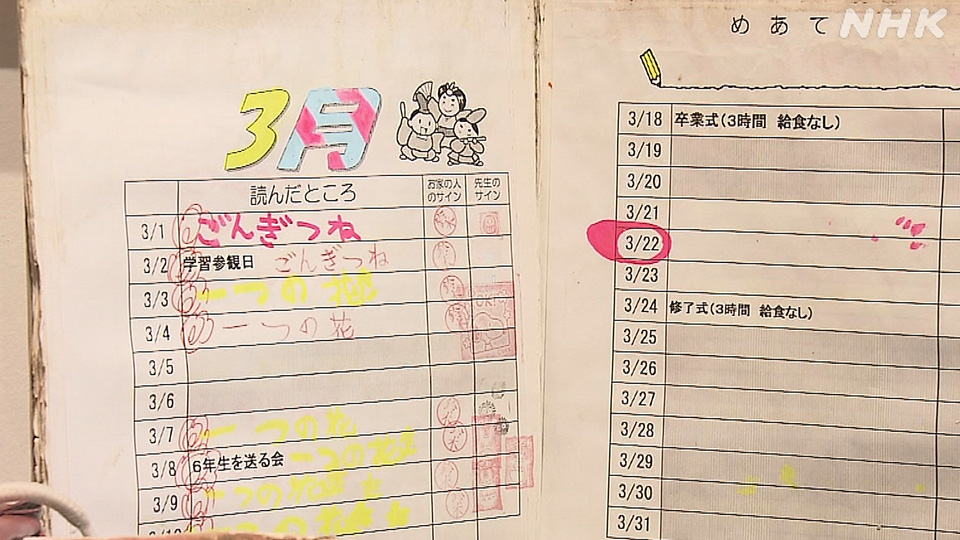 NHK
めあて
3月
読んだところ
お家の人のサイン
先生のサイン
3/1 ごんぎつね
3/2 学習参観日 ごんぎつね
3/3 一つの花
3/4 一つの花
3/5
3/6
3/7 一つの花
3/8 6年生を送る会 一つの花
3/9 一つの花
3/10 一つの花
3/18 卒業式(3時間 給食なし)
3/19
3/20
3/21
3/22
3/23
3/24 修了式(3時間 給食なし)
3/25
3/26
3/27
3/28
3/29
3/30
3/31